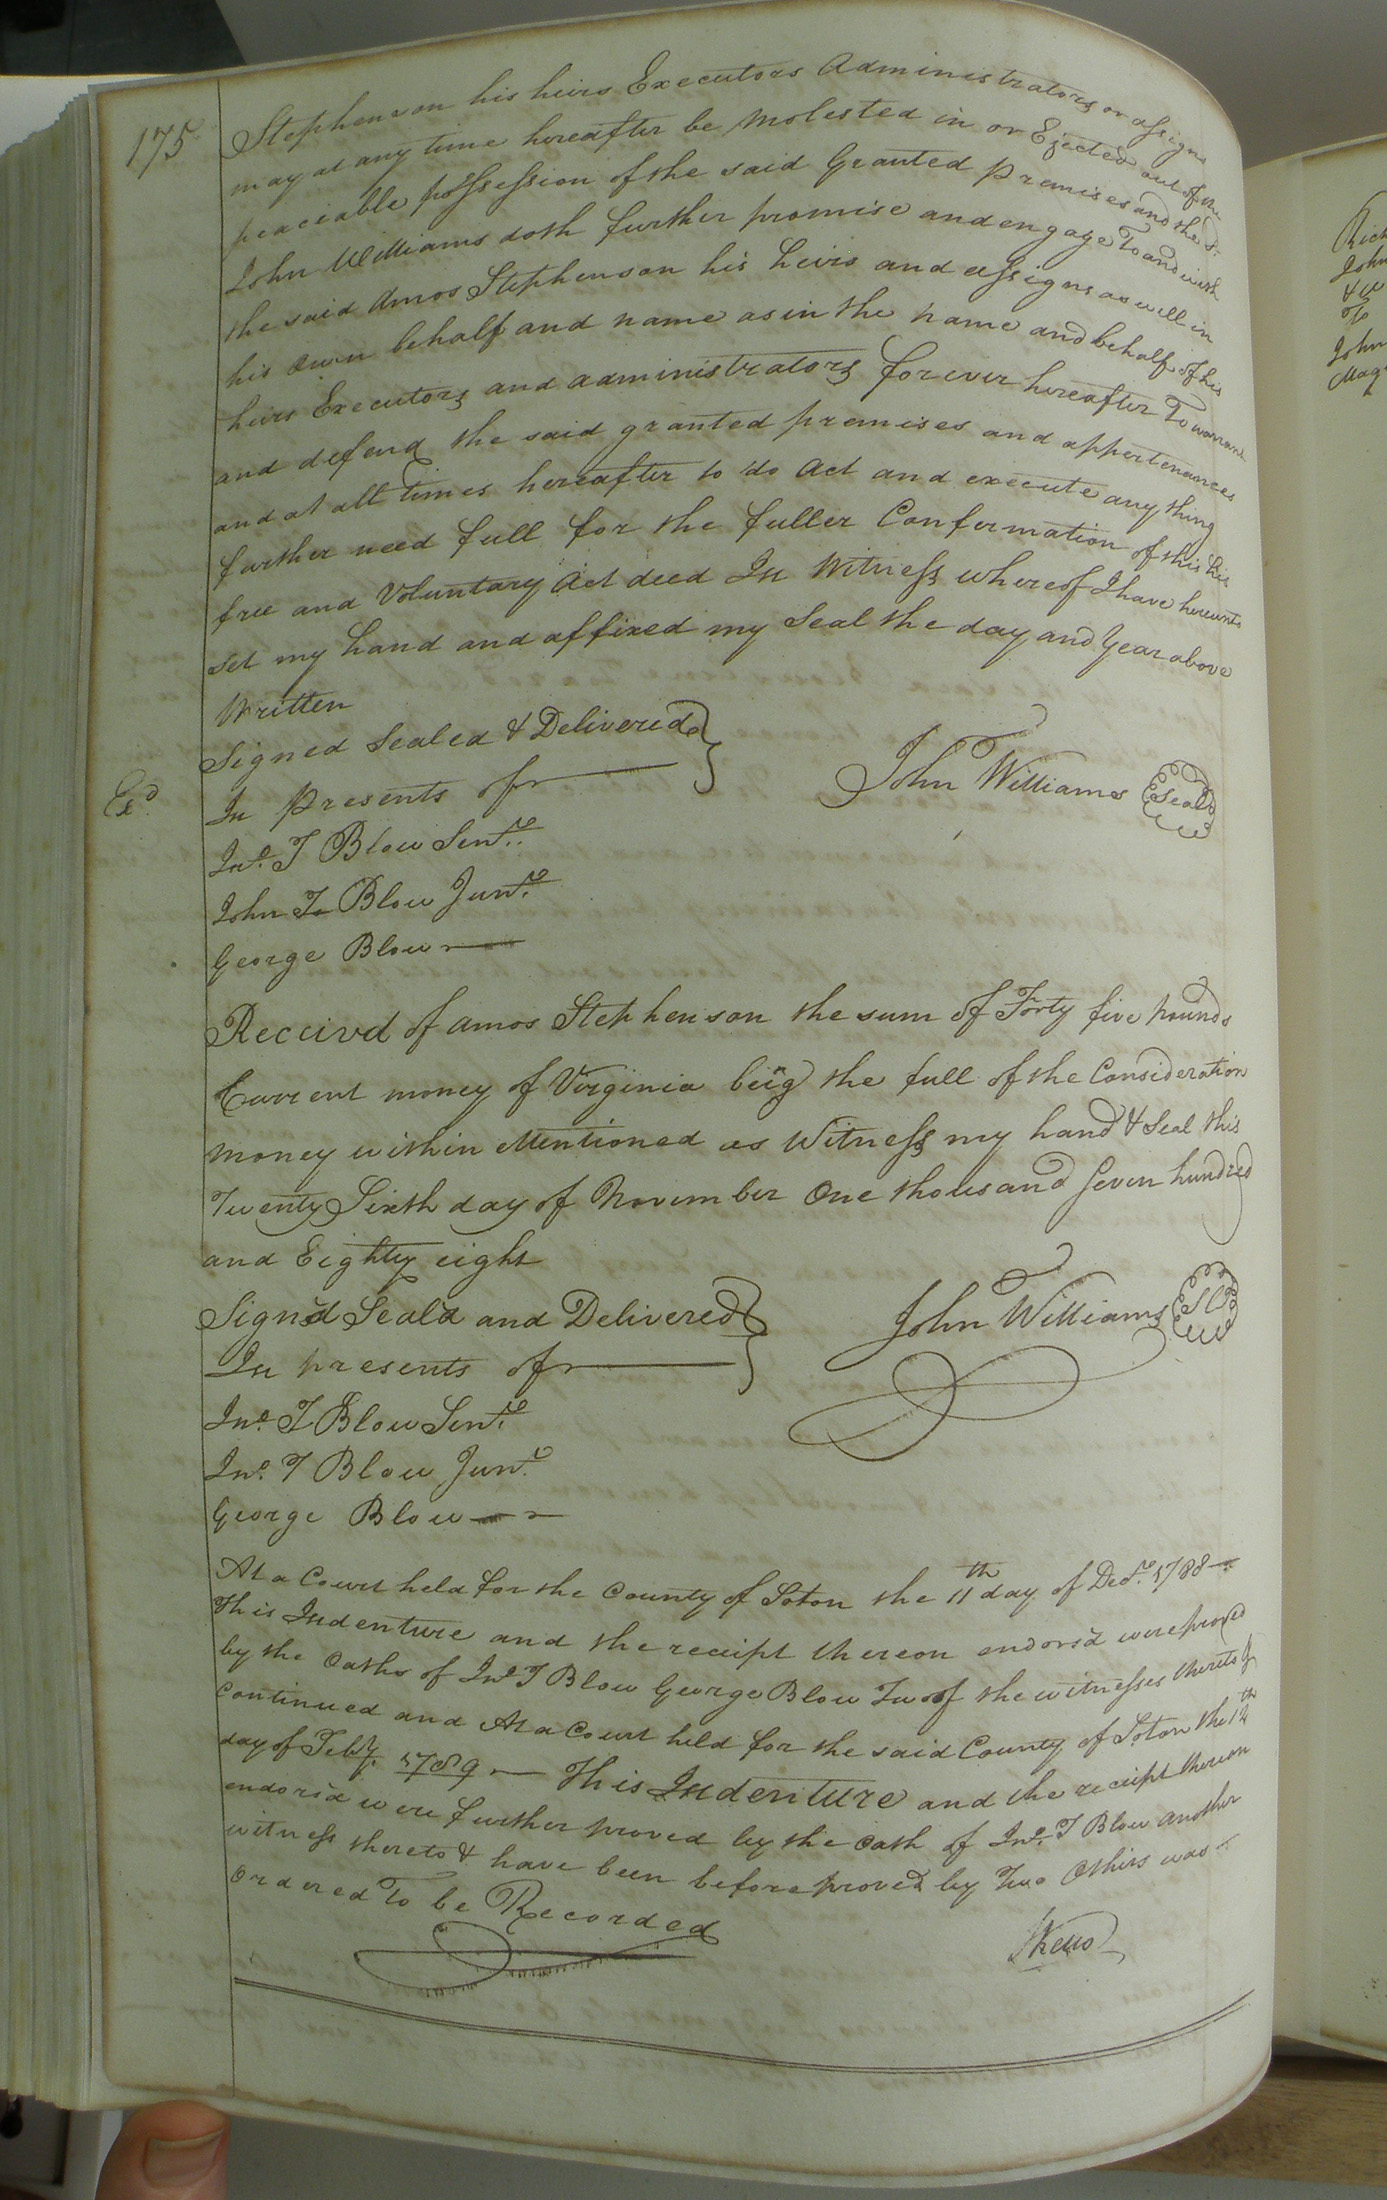 175
Stephenson his heirs Executors Administrators or assigns
may at any time hereafter be molested in or Ejected out of the
peaciable possession of the said Granted premises and the sd.
John Williams doth further promise and engage To and with
the said Amos Stephenson his heirs and assigns as well in
his own behalf and name as in the name and behalf of his
heirs Executors and administrators for ever hereafter To warrant
and defend the said granted premises and appertenances
and at all times hereafter to do Act and execute any thing
further need full for the fuller Confermation of this his
free and Voluntary Act deed In Witness whereof I have hereunto
set my hand and affixed my Seal the day and Year above
Written
Signed Sealed & Delivered
In presents of
John Williams Seal
Exd.
Jno. T Blow Senr.
John T Blow Junr.
George Blow
Received of Amos Stephenson the sum of Forty five pounds
Current money of Virginia beig the full of the Consideration
money within Mentioned as Witness my hand & Seal this
Twenty Sixth day of November One thousand Seven hundred
and Eighty eight
Sign'd Seal'd and Delivered
In presents of
John Williams
Jno. T Blow Senr.
Jno. T Blow Junr.
George Blow
At a Court held for the County of Soton the 11th day of Decr. 1788
This Indenture and the receipt thereon endors'd were proved
by the Oaths of Jno. T Blow George Blow Two of the witnesses thereto &
Continued and At a Court held for the said County of Soton the 12th
day of Feby. 1789 This Indenture and the receipt thereon
endors'd were further proved by the Oath of Jno. T Blow another
witness thereto & have been before proved by Two Others was
Ordered To be Recorded
Rich
John
To
John